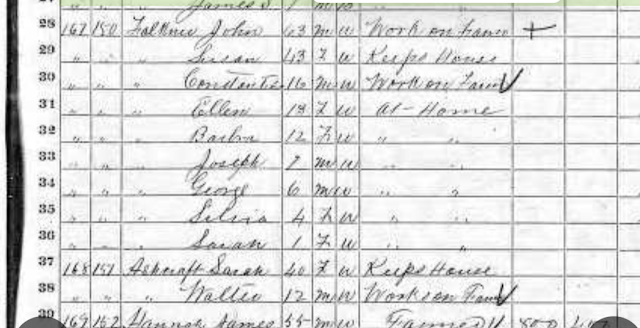 " " " James S. 7 m w
28 167 150 Falkner John 63 m w Work on Farm +
29 " " " Susan 43 F w Keeps House
30 " " " 16 m w Work on Farm ✓
31 " " " Ellen F w At Home
32 " " " Barbra 12 F w " "
33 " " " Joseph 7 m w " "
34 " " " George 6 m w " "
35 " " " Silvia 4 F w " "
36 " " " Sarah 1 F w " "
37 168 151 Ashcraft Sarah 40 F w Keeps House
38 " " " Walter 12 m w Works on Farm ✓
39 169 152 Hannah James 55 m w 800